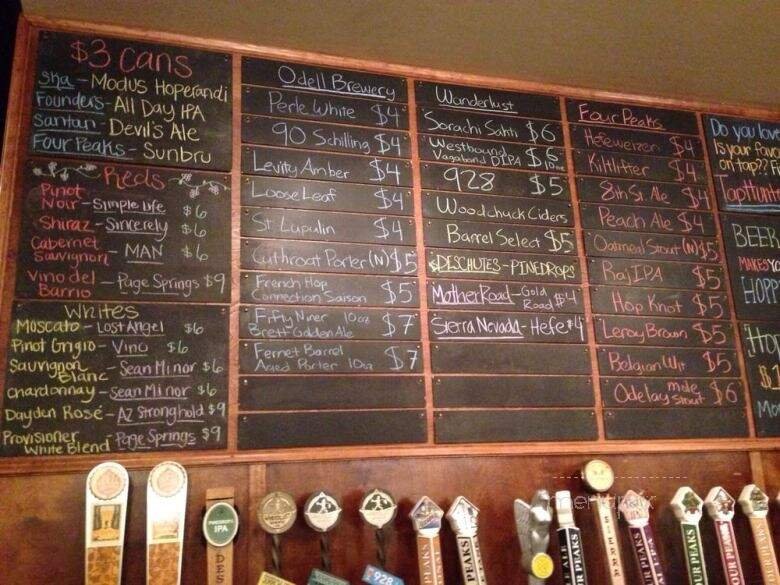 $3 Cans
Ska - Modus Hoperandi
Founders - All Day IPA
Santan - Devil's Ale
Four Peaks - Sunbru
Reds
Pinot
Noir - Simple Life $6
Shiraz - Sincerely $6
Cabernet
Sauvignon - MAN $6
Vino del
Barrio - Page Springs $9
Whites
Moscato - Lost Angel $6
Pinot Grigio - Vino $6
Sauvignon
Blanc - Sean Minor $6
Chardonnay - Sean Minor $6
Dayden Rosé - AZ Stronghold $9
Provisioner
White Blend - Page Springs $9
Odell Brewery
Perle White $4
90 Schilling $4
Levity Amber $4
Loose Leaf $4
St Lupulin $4
Cutthroat Porter (N) $5
French Hop
Connection Saison $5
Fifty Niner 10oz
Brett Golden Ale $7
Fernet Barrel
Aged Porter 10oz $7
Wanderlust
Sorachi Sahti $6
Westbound
Vagabond DIPA $6
928 $5
Woodchuck Ciders
Barrel Select $5
$5 DESCHUTES - PINEDROPS
Mother Road - Gold
Road $4
Sierra Nevada - Hefe $4
Four Peaks
Hefeweizen $4
Kiltlifter $4
8th St. Ale $4
Peach Ale $4
Oatmeal Stout (N) $5
Raj IPA $5
Hop Knot $5
Leroy Brown $5
Belgian Wit $5
Odelay mole
stout $6
Do you
Is your
on tap??
TapHunt
BEER
MAKES YO
HOPP
$1
IPA
DES
928
PEAKS
PEAKS
ALE
PEAKS
PEAKS
PEAKS
PEAKS
PEAKS